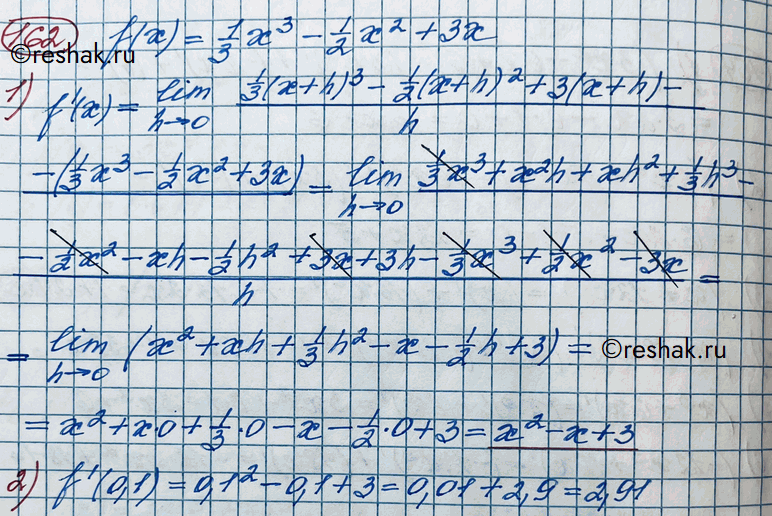 162 f(x) = 1/3 x³ - 1/2 x² + 3x
©reshak.ru
1) f'(x) = lim h→0 1/3(x+h)³ - 1/2(x+h)² + 3(x+h) - / h
-(1/3 x³ - 1/2 x² + 3x) = lim h→0 1/3 x³ + x²h + xh² + 1/3 h³ -
- 1/2 x² - xh - 1/2 h² + 3x + 3h - 1/3 x³ + 1/2 x² - 3x / h =
= lim h→0 (x² + xh + 1/3 h² - x - 1/2 h + 3) =
©reshak.ru
= x² + x·0 + 1/3·0 - x - 1/2·0 + 3 = x² - x + 3
2) f'(0,1) = 0,1² - 0,1 + 3 = 0,01 + 2,9 = 2,91